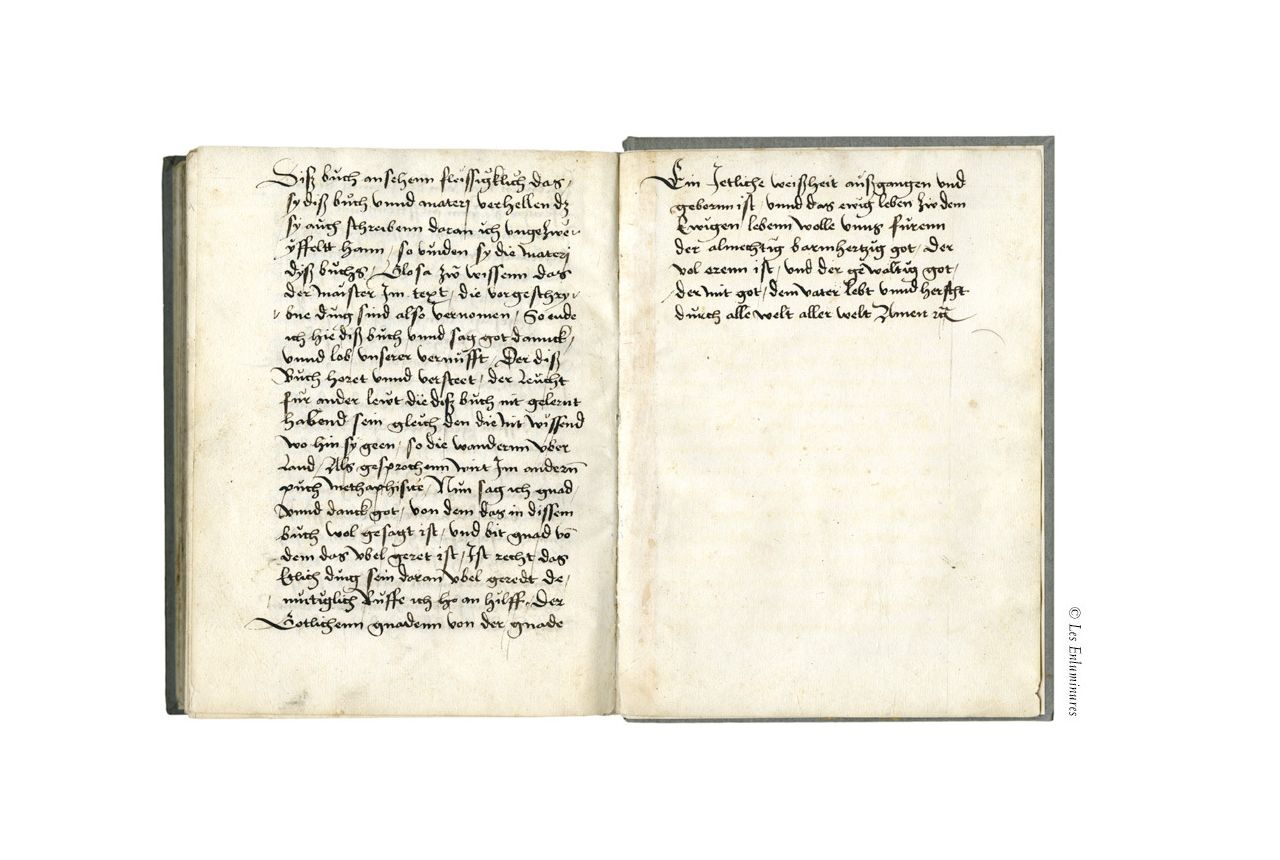 Diß buch ansehenn fleissigklich das
sy diß buch vnnd materj verhellen dz
sy auch schreibenn daran ich vngezwei
yffeltt hann / so vinden sy die materj
dyß buchs / Glosa zů wissenn das
der maister Im text / die vorgeschry
bne ding sind also vernomen / So ende
ich hie diß buch vnnd sag got dannck /
vnnd lob vnserer vernufft / Der diß
Buch horet vnnd versteet / der leucht
für ander lewt die diß buch nit gelernt
habend sein gleich den die nit wissend
wo hin sy geen / so die wandernn vber
Land / Als gesprochenn wirt Im andern
puch methaphisice / Nun sag ich gnad
vnnd danck got / von dem das in dissem
buch wol gesagt ist / vnd bit gnad vō
dem das vbel geret ist / Ist recht das
Etlich ding sein daran vbel geredt de /
mutiglich Ruffe ich an hilff / Der
Gotlichenn gnadenn von der gnade
Ein Jetliche weißheit außgangen vnd
gebornn ist / vnnd das ewig leben zw dem
Ewigen lebenn wolle vnns fürenn
der almechtig barmhertzig got / der
vol erenn ist / vnd der gewaltig got /
der mit got / dem vater lebt vnnd herscht
durch alle welt aller welt Amen
© Les Enluminures